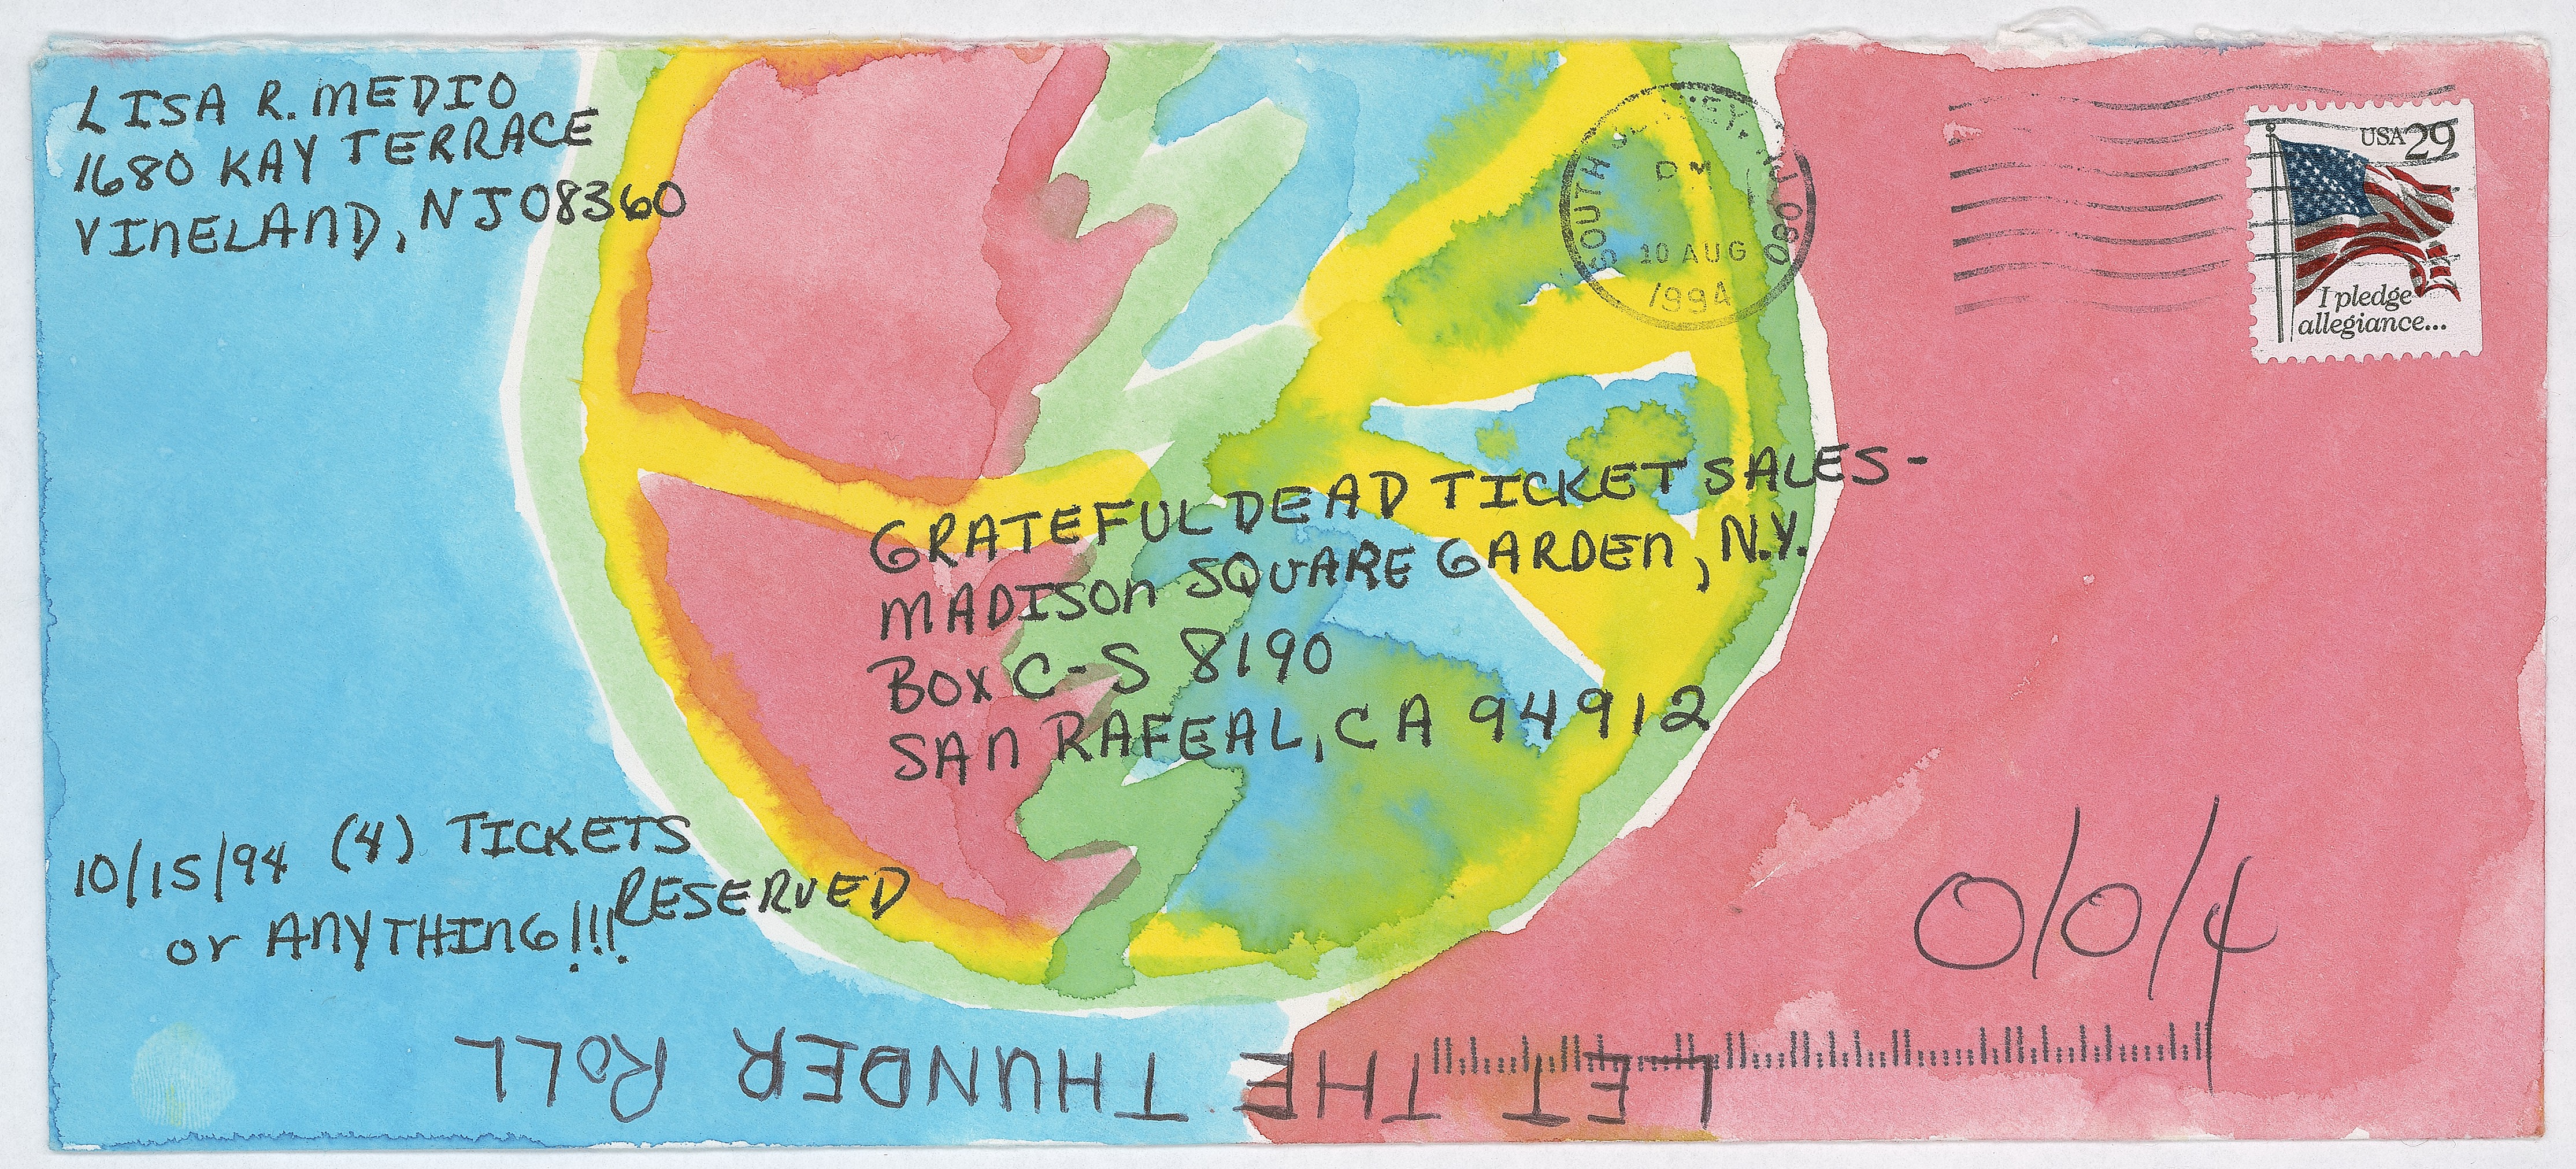 LISA R. MEDIO
1680 KAY TERRACE
VINELAND, NJ 08360
SOUTH JERSEY, NJ 080
PM
10 AUG
1994
USA 29
I pledge
allegiance...
GRATEFUL DEAD TICKET SALES-
MADISON SQUARE GARDEN, N.Y.
BOX C-S 8190
SAN RAFEAL, CA 94912
10/15/94 (4) TICKETS
RESERVED
or ANYTHING!!!
0/0/4
LET THE THUNDER ROLL